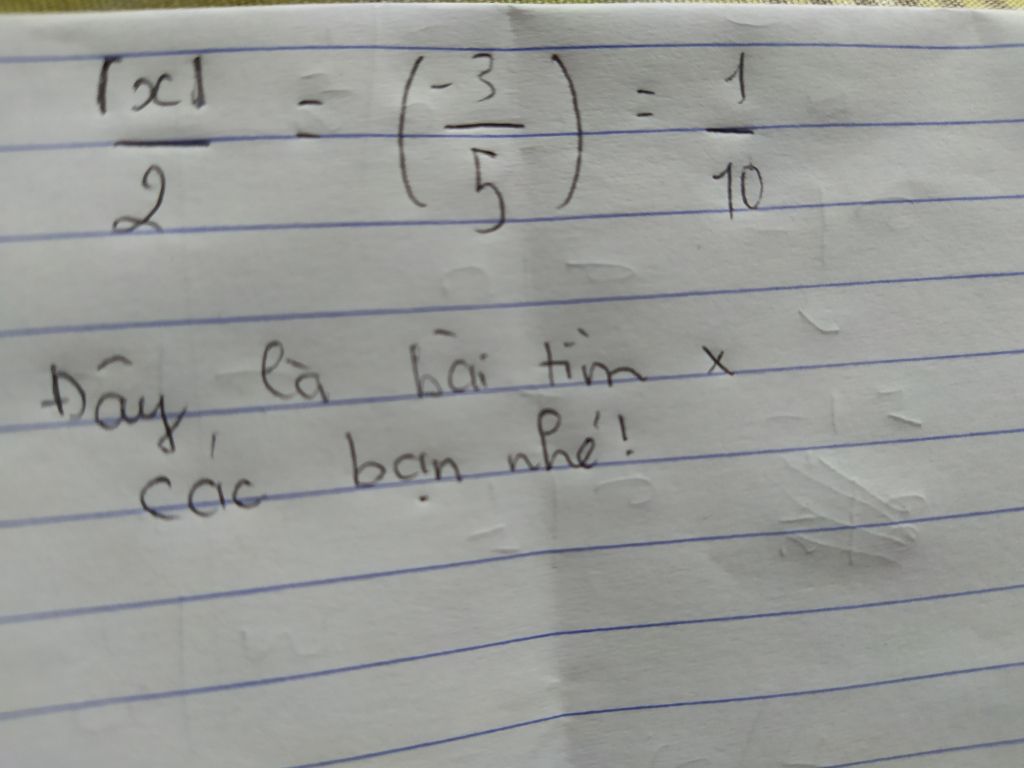 |x|/2 = (-3/5) = 1/10
Đây là bài tìm x
các bạn nhé!